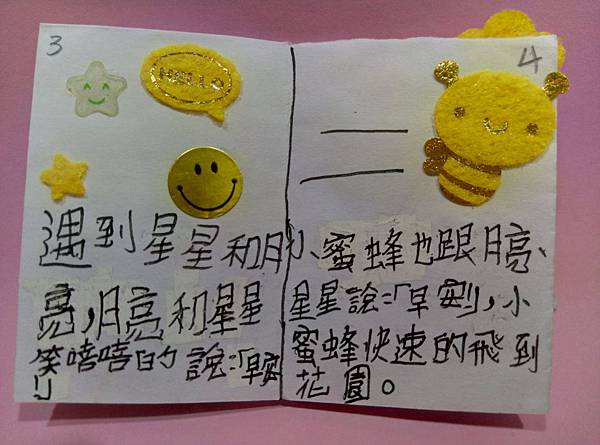 3
HELLO
遇到星星和月
亮,月亮和星星
笑嘻嘻的說:「早安
」
4
小蜜蜂也跟月亮、
星星說:「早安」,小
蜜蜂快速的飛到
花園。